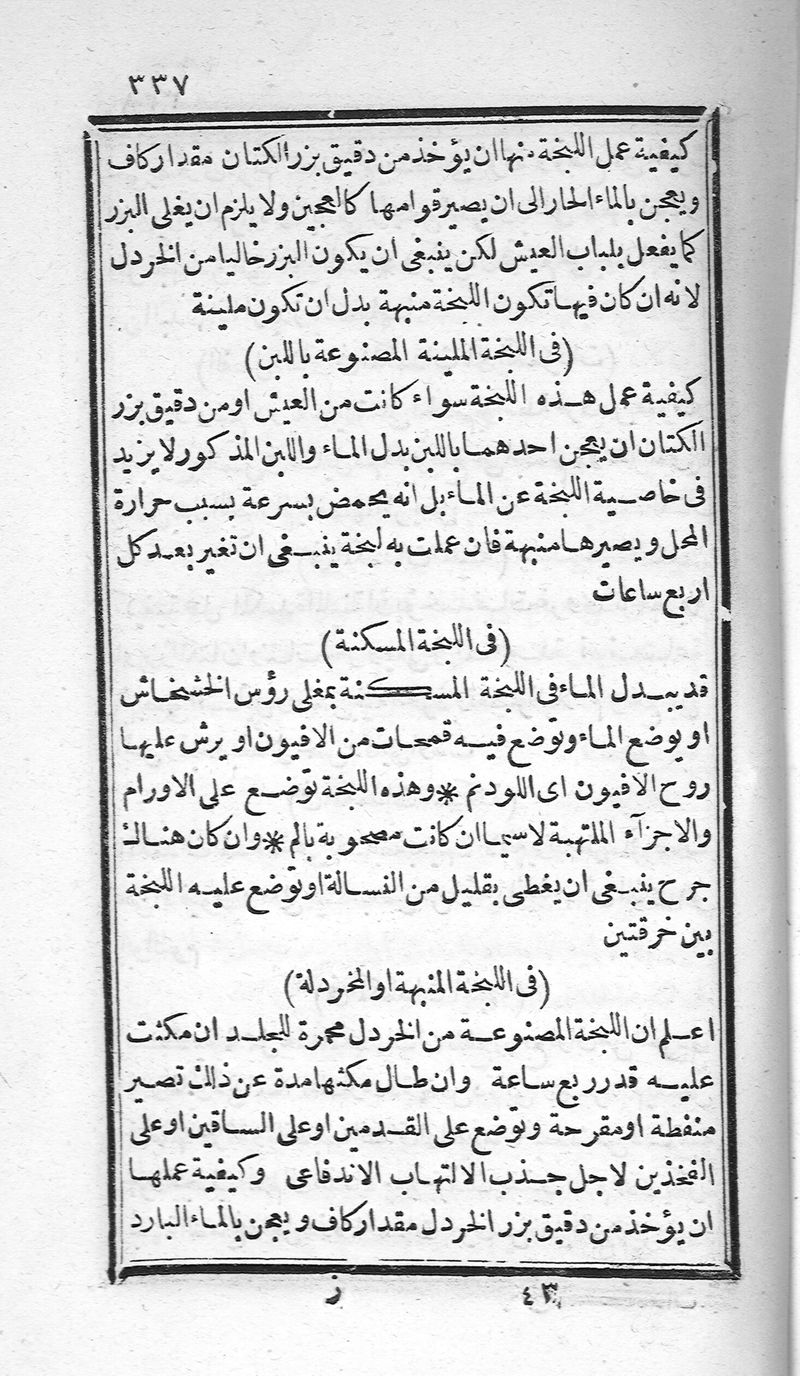 ٣٣٧
كيفية عمل اللبخة منها ان يؤخذ من دقيق بزر الكتان مقدار كاف
ويعجن بالماء الحار الى ان يصير قوامها كالعجين ولا يلزم ان يغلى البزر
كما يفعل بلباب العيش لكن ينبغى ان يكون البزر خاليا من الخردل
لانه ان كان فيها تكون اللبخة منبهة بدل ان تكون ملينة
(فى اللبخة الملينة المصنوعة باللبن)
كيفية عمل هذه اللبخة سواء كانت من العيش او من دقيق بزر
الكتان ان يعجن احدهما باللبن بدل الماء واللبن المذكور لا يزيد
فى خاصية اللبخة عن الماء بل انه يحمض بسرعة بسبب حرارة
المحل ويصيرها منبهة فان عملت به لبخة ينبغى ان تغير بعد كل
اربع ساعات
(فى اللبخة المسكنة)
قد يبدل الماء فى اللبخة المسكنة بمغلى رؤس الخشخاش
او يوضع الماء وتوضع فيه قمحات من الافيون او يرش عليها
روح الافيون اى اللودنم * وهذه اللبخة توضع على الاورام
والاجزآء الملتهبة لاسيما ان كانت مصحوبة بالم * وان كان هناك
جرح ينبغى ان يغطى بقليل من النسالة او توضع عليه اللبخة
بين خرقتين
(فى اللبخة المنبهة او المخردلة)
اعلم ان اللبخة المصنوعة من الخردل محمرة للجلد ان مكثت
عليه قدر ربع ساعة وان طال مكثها مدة عن ذلك تصير
منفطة او مقرحة وتوضع على القدمين او على الساقين او على
الفخذين لاجل جذب الالتهاب الاندفاعى وكيفية عملها
ان يؤخذ من دقيق بزر الخردل مقدار كاف ويعجن بالماء البارد
٤٣ ز